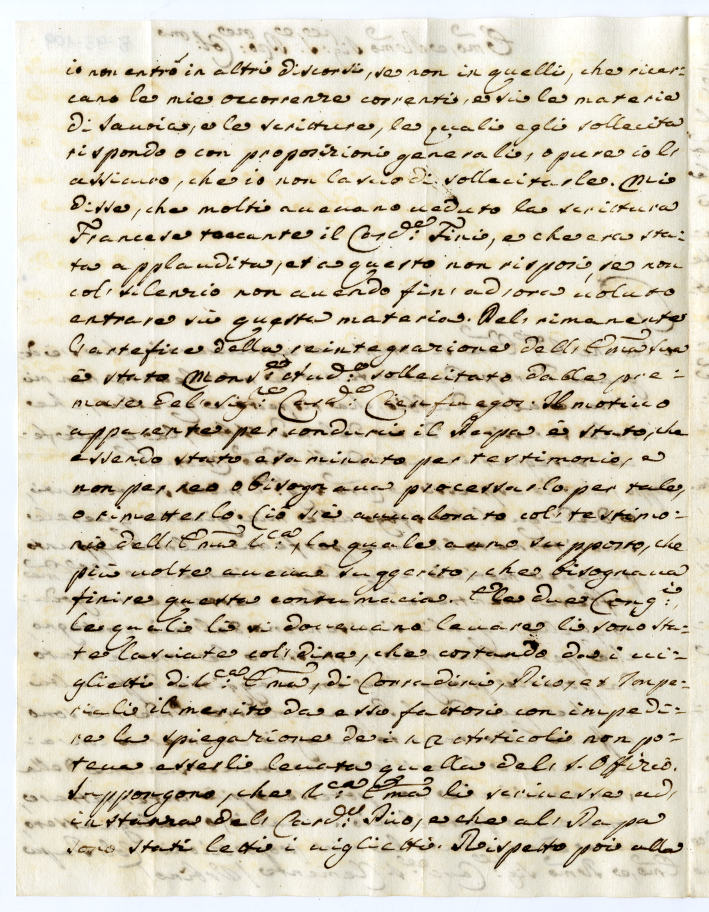 io non entrò in altri discorsi, se non in quelli, che ricer-
cano le mie occorrenze correnti, e sù le materie
di Savoia, e le scritture, le quali egli sollecita
rispondo o con proposizioni generali, o pure io lo
assicuro, che io non lascio di sollecitarle. Mi
disse, che molti avevano veduto la scrittura
Francese toccante il Card.le Fini, e che era sta-
ta applaudita, et a questo non risposi, se non
col silenzio non avendo fin ad ora voluto
entrare sù questa materia. Del rimanente
l'artefice della reintegrazione dell'Em.a Sua
è stato Mons.re sollecitato dalle pre-
mure del Sig.re Card.le Cienfuegos. Il motivo
apparente per condurvi il Papa è stato, che
essendo stato esaminato per testimonio, e
non per reo o bisognava processarlo per tale,
o rimetterlo. Ciò si è avvalorato col testimo-
nio dell'Em.a V.ra, la quale anno supposto, che
più volte aveva suggerito, che bisognava
finire questa contumacia. E le due Cong.i,
le quali li si dovevano levare li sono sta-
te lasciate col dire, che costando da i vi-
glietti di V.ra Em.a, di Corradini, Pico, et Impe-
riali il merito da esso fattosi con impedi-
re la spiegazione de i 12 Articoli non po-
teva esserli levata quella del S. Offizio.
Suppongono, che V.ra Em.a li scrivesse ad
instanza del Card.le Pico, e che al Papa
sono stati letti i viglietti. Rispetto poi alla